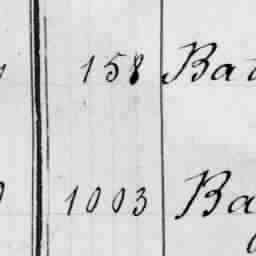 158 Bat
1003 Bay